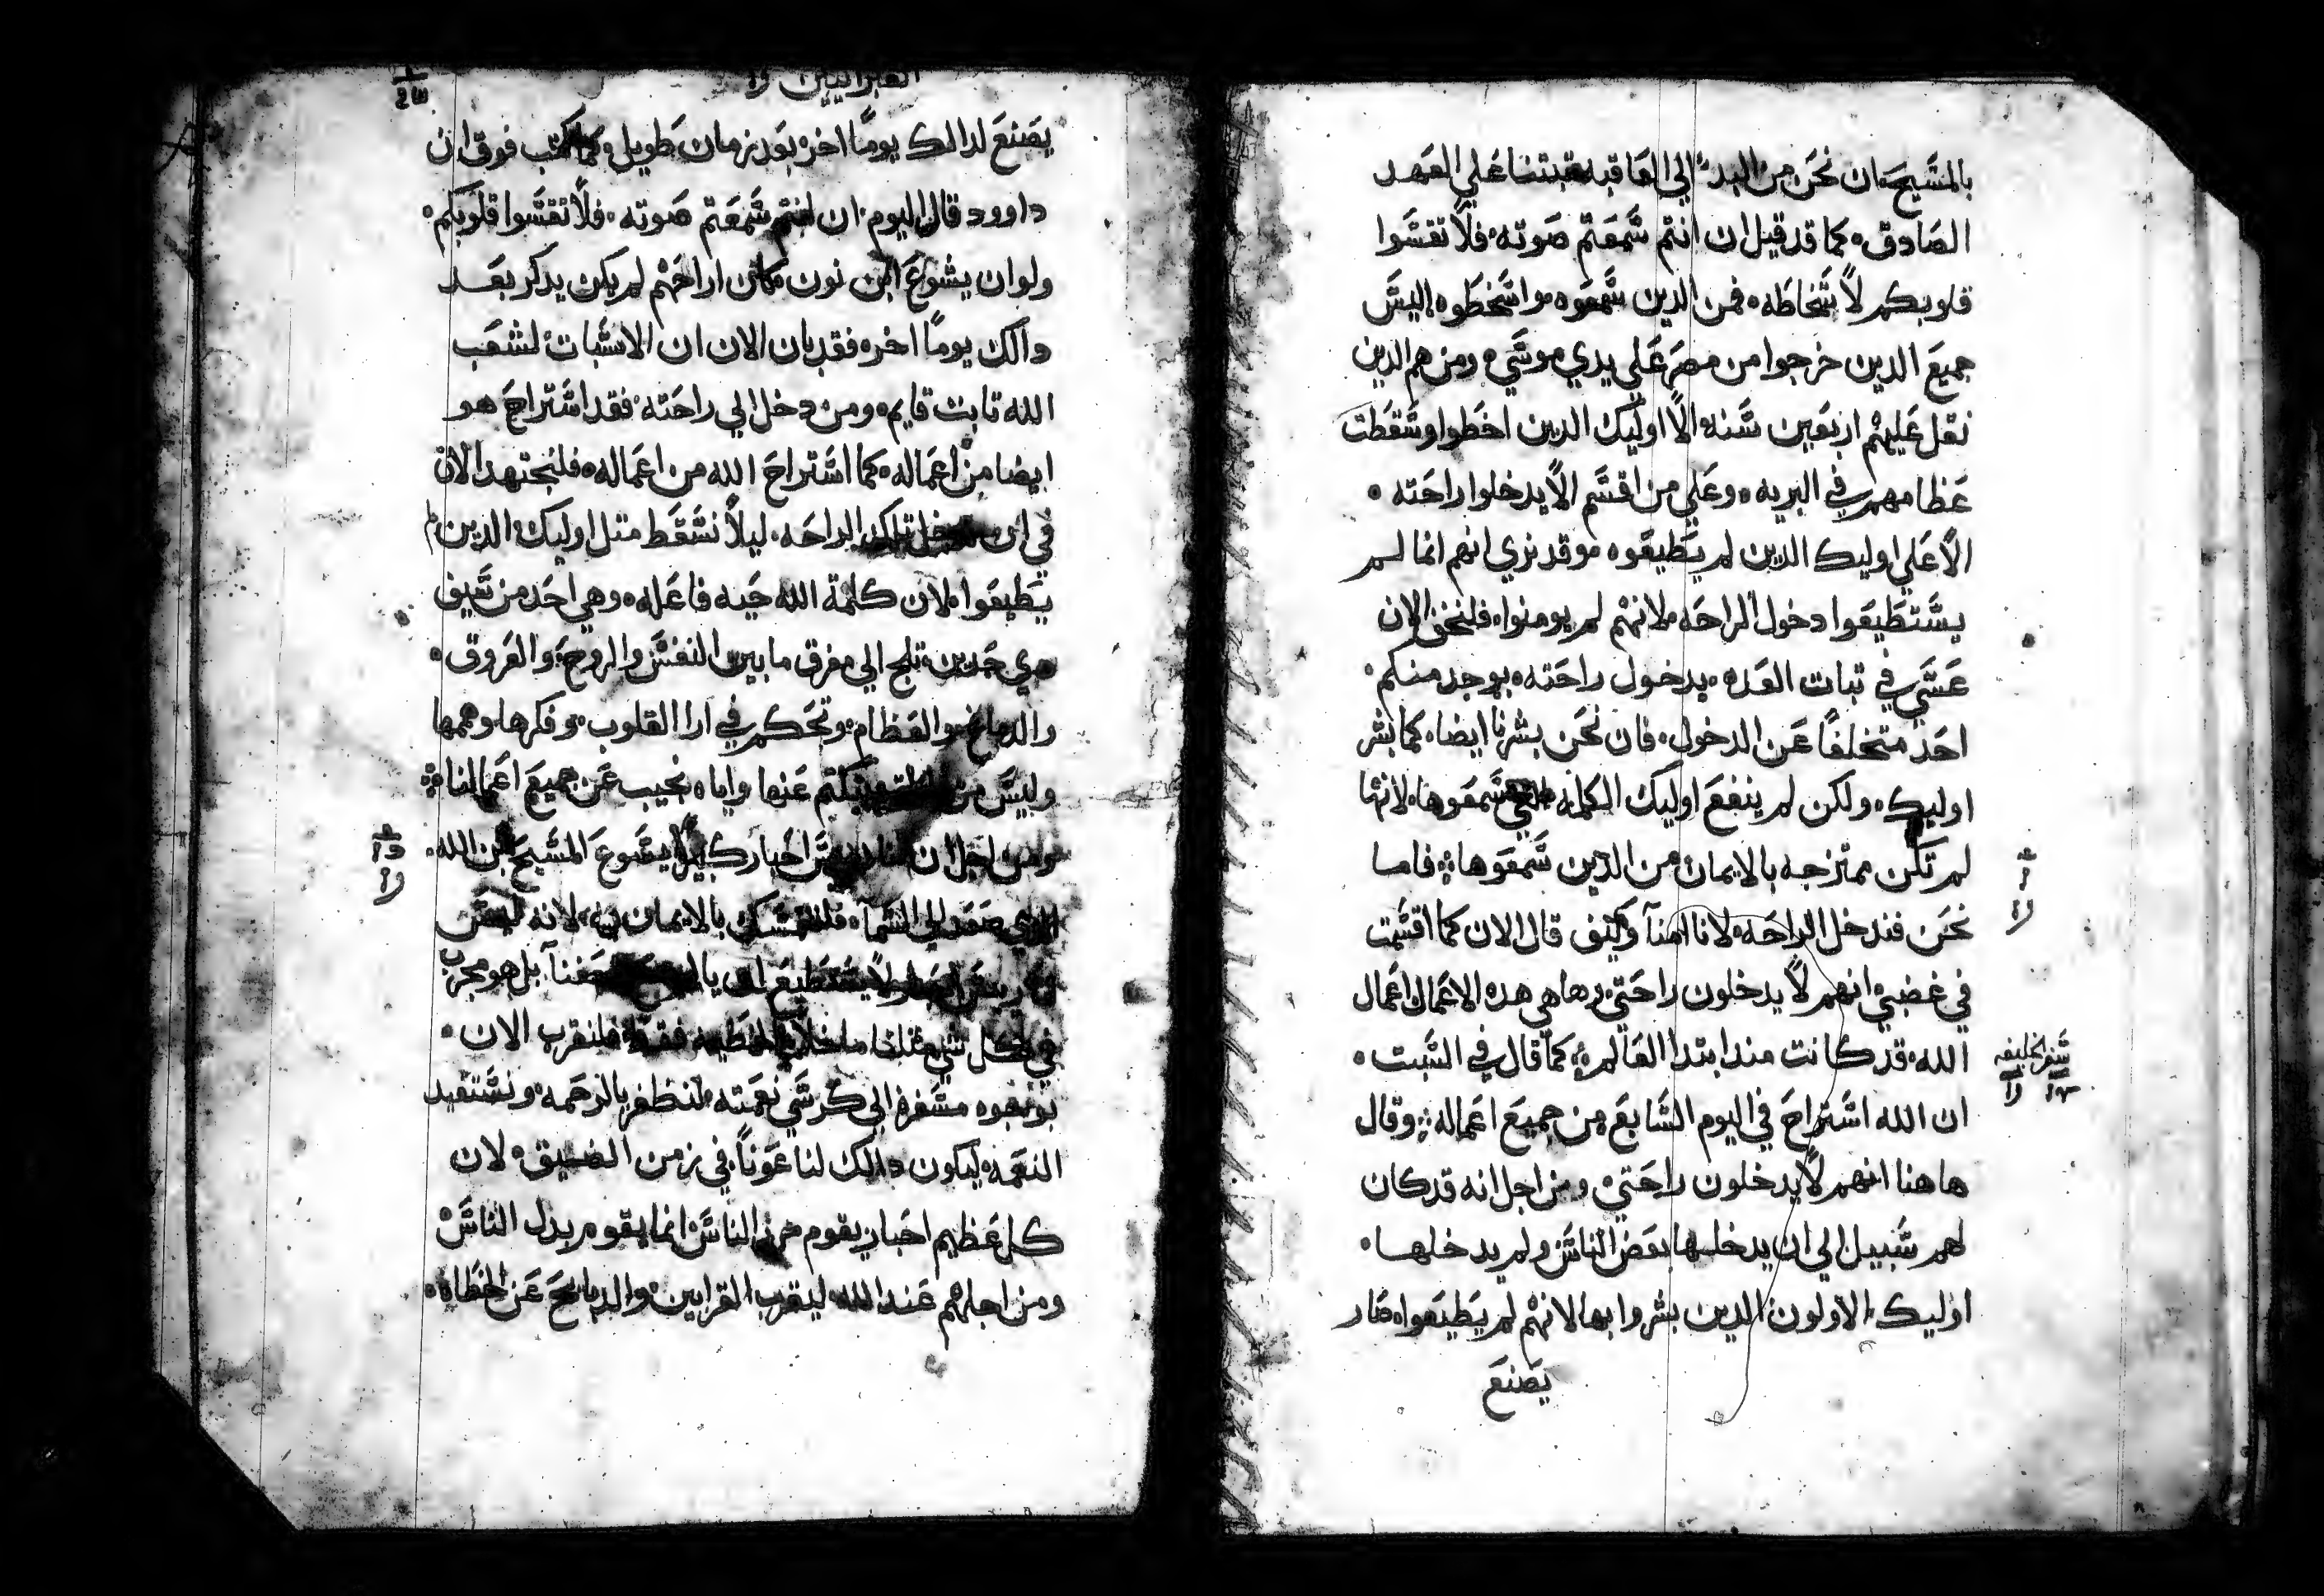 بالمسيح، ان نحن من البدء الي العاقبه ثبتنا علي العهد
الصادق، كما قد قيل ان انتم سمعتم صوته، فلا تقسوا
قلوبكم لاسخاطه، فمن الدين سمعوه واسخطوه اليس
جميع الدين خرجوا من مصر علي يدي موسي، ومن هم الدين
ثقل عليهم اربعين سنه، الا اوليك الدين اخطوا وسقطت
عظامهم في البريه، وعلي من اقسم الا يدخلوا راحته،
الا علي اوليك الدين لم يطيعوه، وقد نري انهم انما لم
يستطيعوا دخول الراحه، لانهم لم يومنوا، فلنخف الان
عسي في تبات العده، بدخول راحته، يوجد منكم،
احد متخلفا عن الدخول، فان نحن بشرنا ايضا، كما بشر
اوليك، ولكن لم ينفع اوليك الكلمه التي سمعوها، لانها
لم تكن ممتزجه بالايمان من الدين سمعوها، فاما
نحن فندخل الراحه، لانا امنا، وكيف قال الان كما اقسمت
في غضبي انهم لا يدخلون راحتي، وها هي هده الاعمال اعمال
الله، قد كانت مند ابتدا العالم، كما قال في السبت،
ان الله استراح في اليوم السابع من جميع اعماله، وقال
هاهنا انهم لا يدخلون راحتي، ومن اجل انه قد كان
لهم سبيل الي ان يدخلها بعض الناس ولم يدخلها،
اوليك، الاولون الدين بشروا بها لانهم لم يطيعوا، صار
يصنع
العبرانيين
يصنع لدالك يوما اخر، بعد زمان طويل، كما كتب فوق ان
داوود قال اليوم، ان انتم سمعتم صوته، فلا تقسوا قلوبكم،
ولو ان يشوع ابن نون كان اراحهم لم يكن يدكر بعد
دالك يوما اخر، فقد بان الان ان الاسبات لشعب
الله تابت قايم، ومن دخل الي راحته، فقد استراح هو
ايضا من اعماله، كما استراح الله من اعماله، فلنجتهد الان
في ان ندخل تلك الراحه، ليلا نسقط متل اوليك الدين لم
يطيعوا، لان كلمة الله حيه فاعله، وهي احد من سيف
دي حدين، تلج الي مفرق ما بين النفس والروح، والعروق،
والدماغ، والعظام، وتحكم في ارا القلوب، وفكرها، وهمها
وليس من يكتم عنها واياه نجيب عن جميع اعمالنا
ومن اجل ان لنا ريس احبار كبيرا يسوع المسيح ابن الله،
الدي صعد الي السما، فلنتمسك بالايمان به، لانه ليس
لا يستطيع ان ضعفنا، بل هو مجرب
في كل شي متلنا ما خلا الخطيه فقط، فلنقرب الان،
بوجوه مسفره الي كرسي نعمته، لنظفر بالرحمه، ونستفيد
النعمه، ليكون دالك لنا عونا، في زمن الضيق، لان
كل عظيم احبار يقوم من الناس، انما يقوم بدل الناس،
ومن اجلهم عند الله، ليقرب القرابين، والدبايح عن الخطاه،
سفر الخليفه